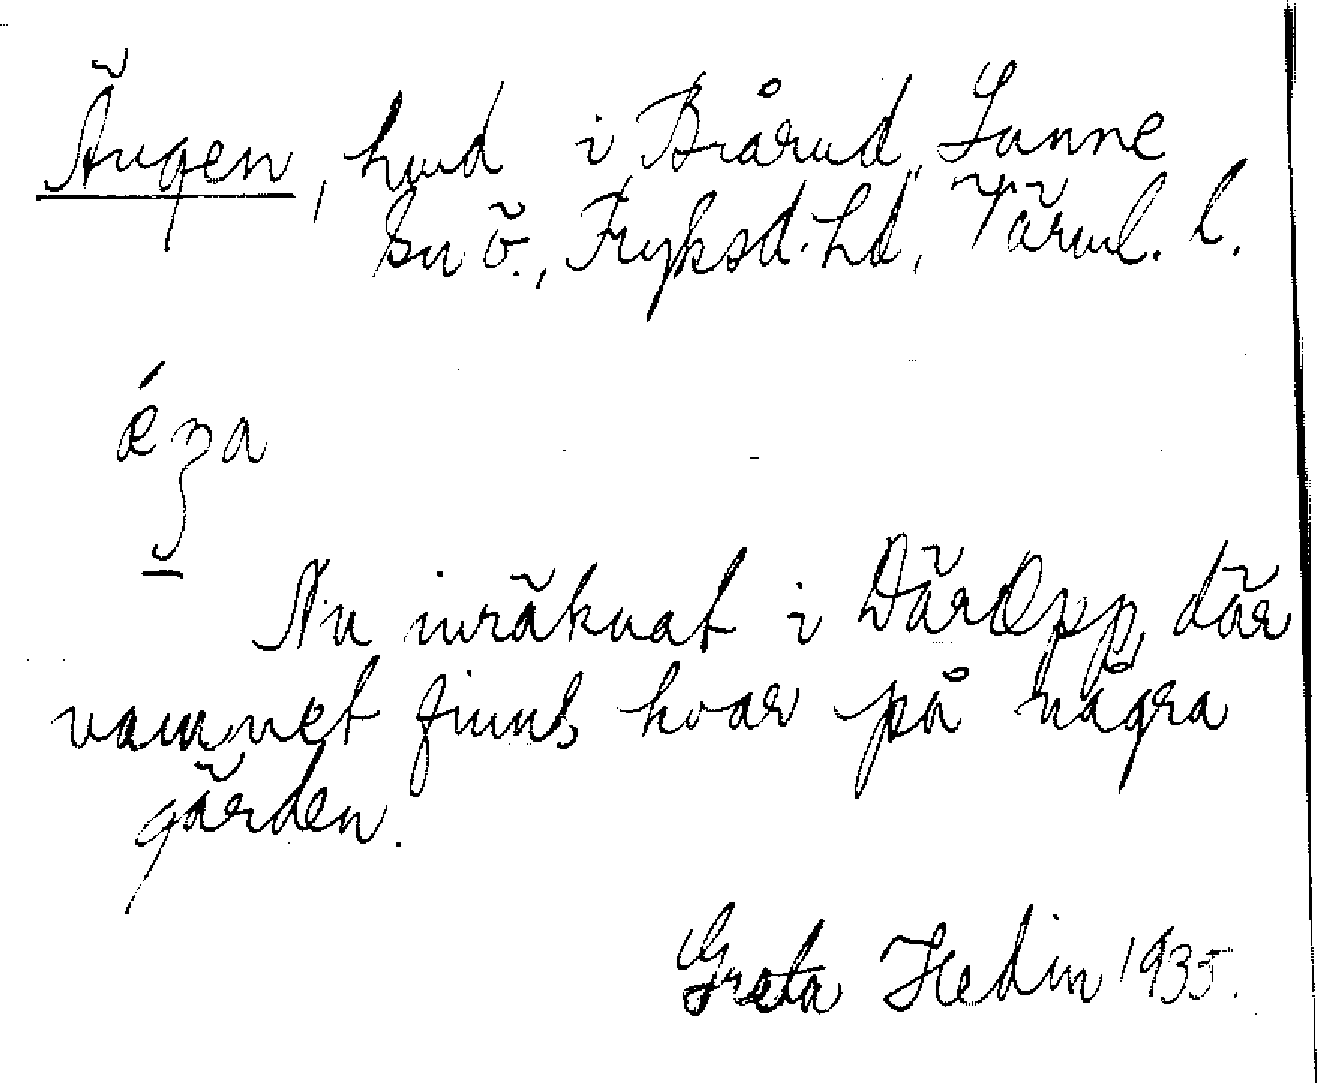 Ängen, hmd i Brårud, Sunne
sn ö., Fryksd. hd, Värml. l.
éŋa
Nu inräknat i Där Opp, där
namnet finns kvar på några
gärden.
Greta Hedin 1935.